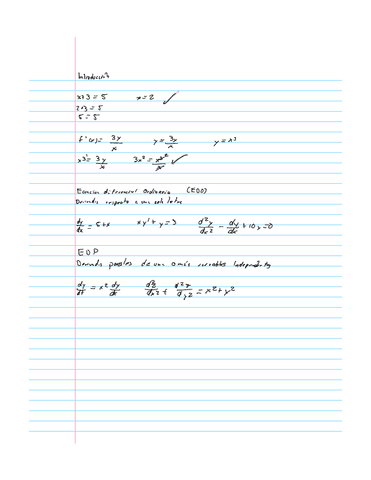 Introducción
x+3=5 x=2 ✓
2+3=5
5=5
f'(x)= 3y/x y'= 3y/x y=x³
x3'= 3y/x 3x²= ✓
Ecuación diferencial Ordinaria (EDO)
Derivada respecto a una sola
dy/dx = 5+x xy'+y=3 d²y/dx² - dy/dx +10y=0
EDP
Derivada parciales de una o más variables independientes
dy/dt = x² dy/dx + d²y/dy² = x²+y²